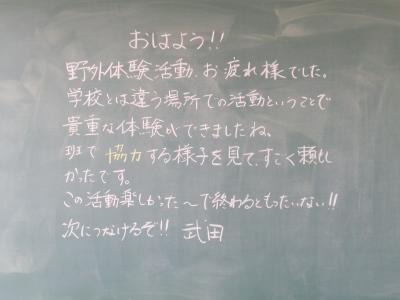 おはよう!!
野外体験活動、お疲れ様でした。
学校とは違う場所での活動ということで
貴重な体験ができましたね。
班で協力する様子を見て、すごく頼もし
かったです。
この活動楽しかった〜で終わるともったいない!!
次につなげるぞ!! 武田